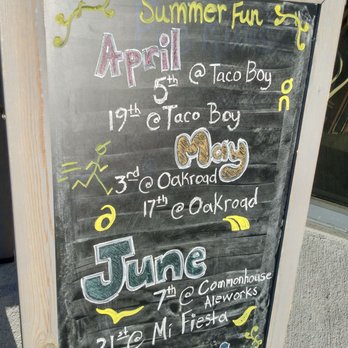 Summer Fun
April
5th @ Taco Boy
19th @ Taco Boy
May
3rd @ Oakroad
17th @ Oakroad
June
7th @ Commonhouse
Aleworks
21st @ Mi Fiesta